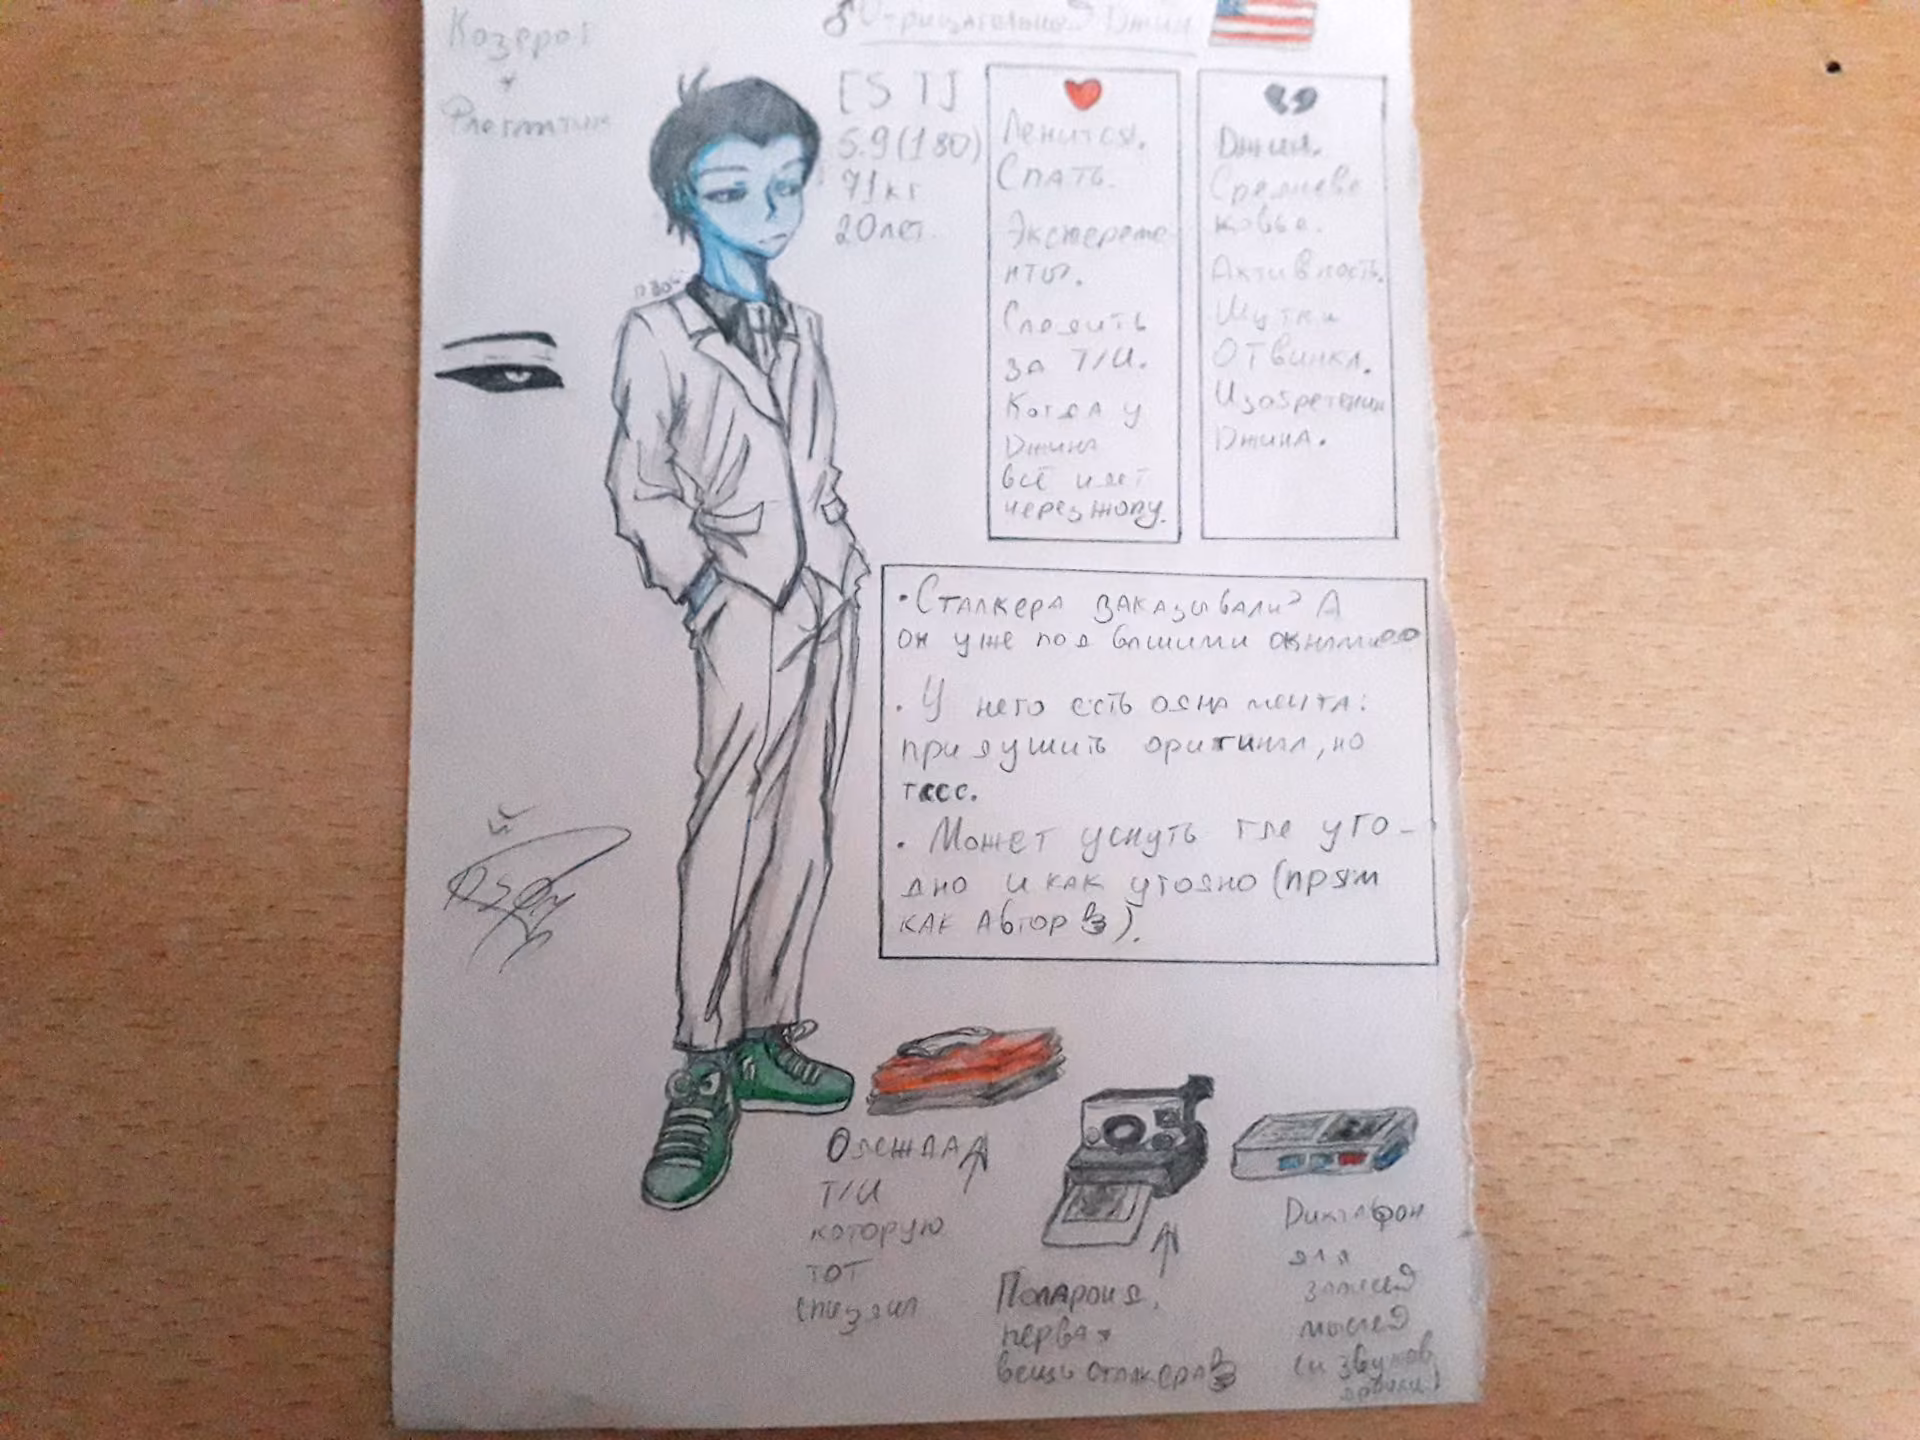 Козерог
+
Флегматик
♂ Отрицательный Джин
[S T]
5.9 (180)
71кг
20лет.
Ленится.
Спать.
Эксперeме-
нты.
Следить
за Т/И.
Когда у
Джина
всё идёт
через жопу.
Джин.
Средневе
ковье.
Активность.
Шутки
Отвинкл.
Изобретения
Джина.
• Сталкера заказывали? А
он уже под вашими окнами
• У него есть одна мечта:
придушить оригинал, но
тссс.
• Может уснуть где уго-
дно и как угодно (прям
как автор).
Одежда
Т/И
которую
тот
спиздил
Полароид,
первая
вещь сталкера
Диктофон
для
записей
мыслей
(и звуков